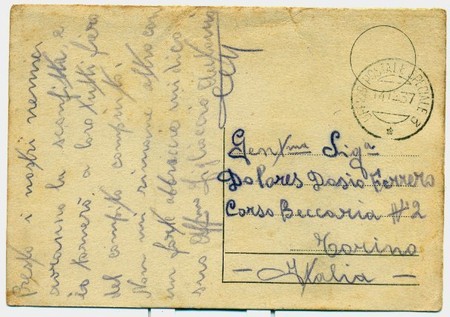 Presto i nostri nemici
avranno la sconfitta, e
io tornerò a loro tutti fiero
del compito compiuto.
Non mi rimane altro che
un forte abbraccio mi dico
suo
UFFICIO POSTALE SPECIALE 3
Gentma Sig.a
Dolores Dosio Ferrero
Corso Beccaria #2
Torino
- Italia -